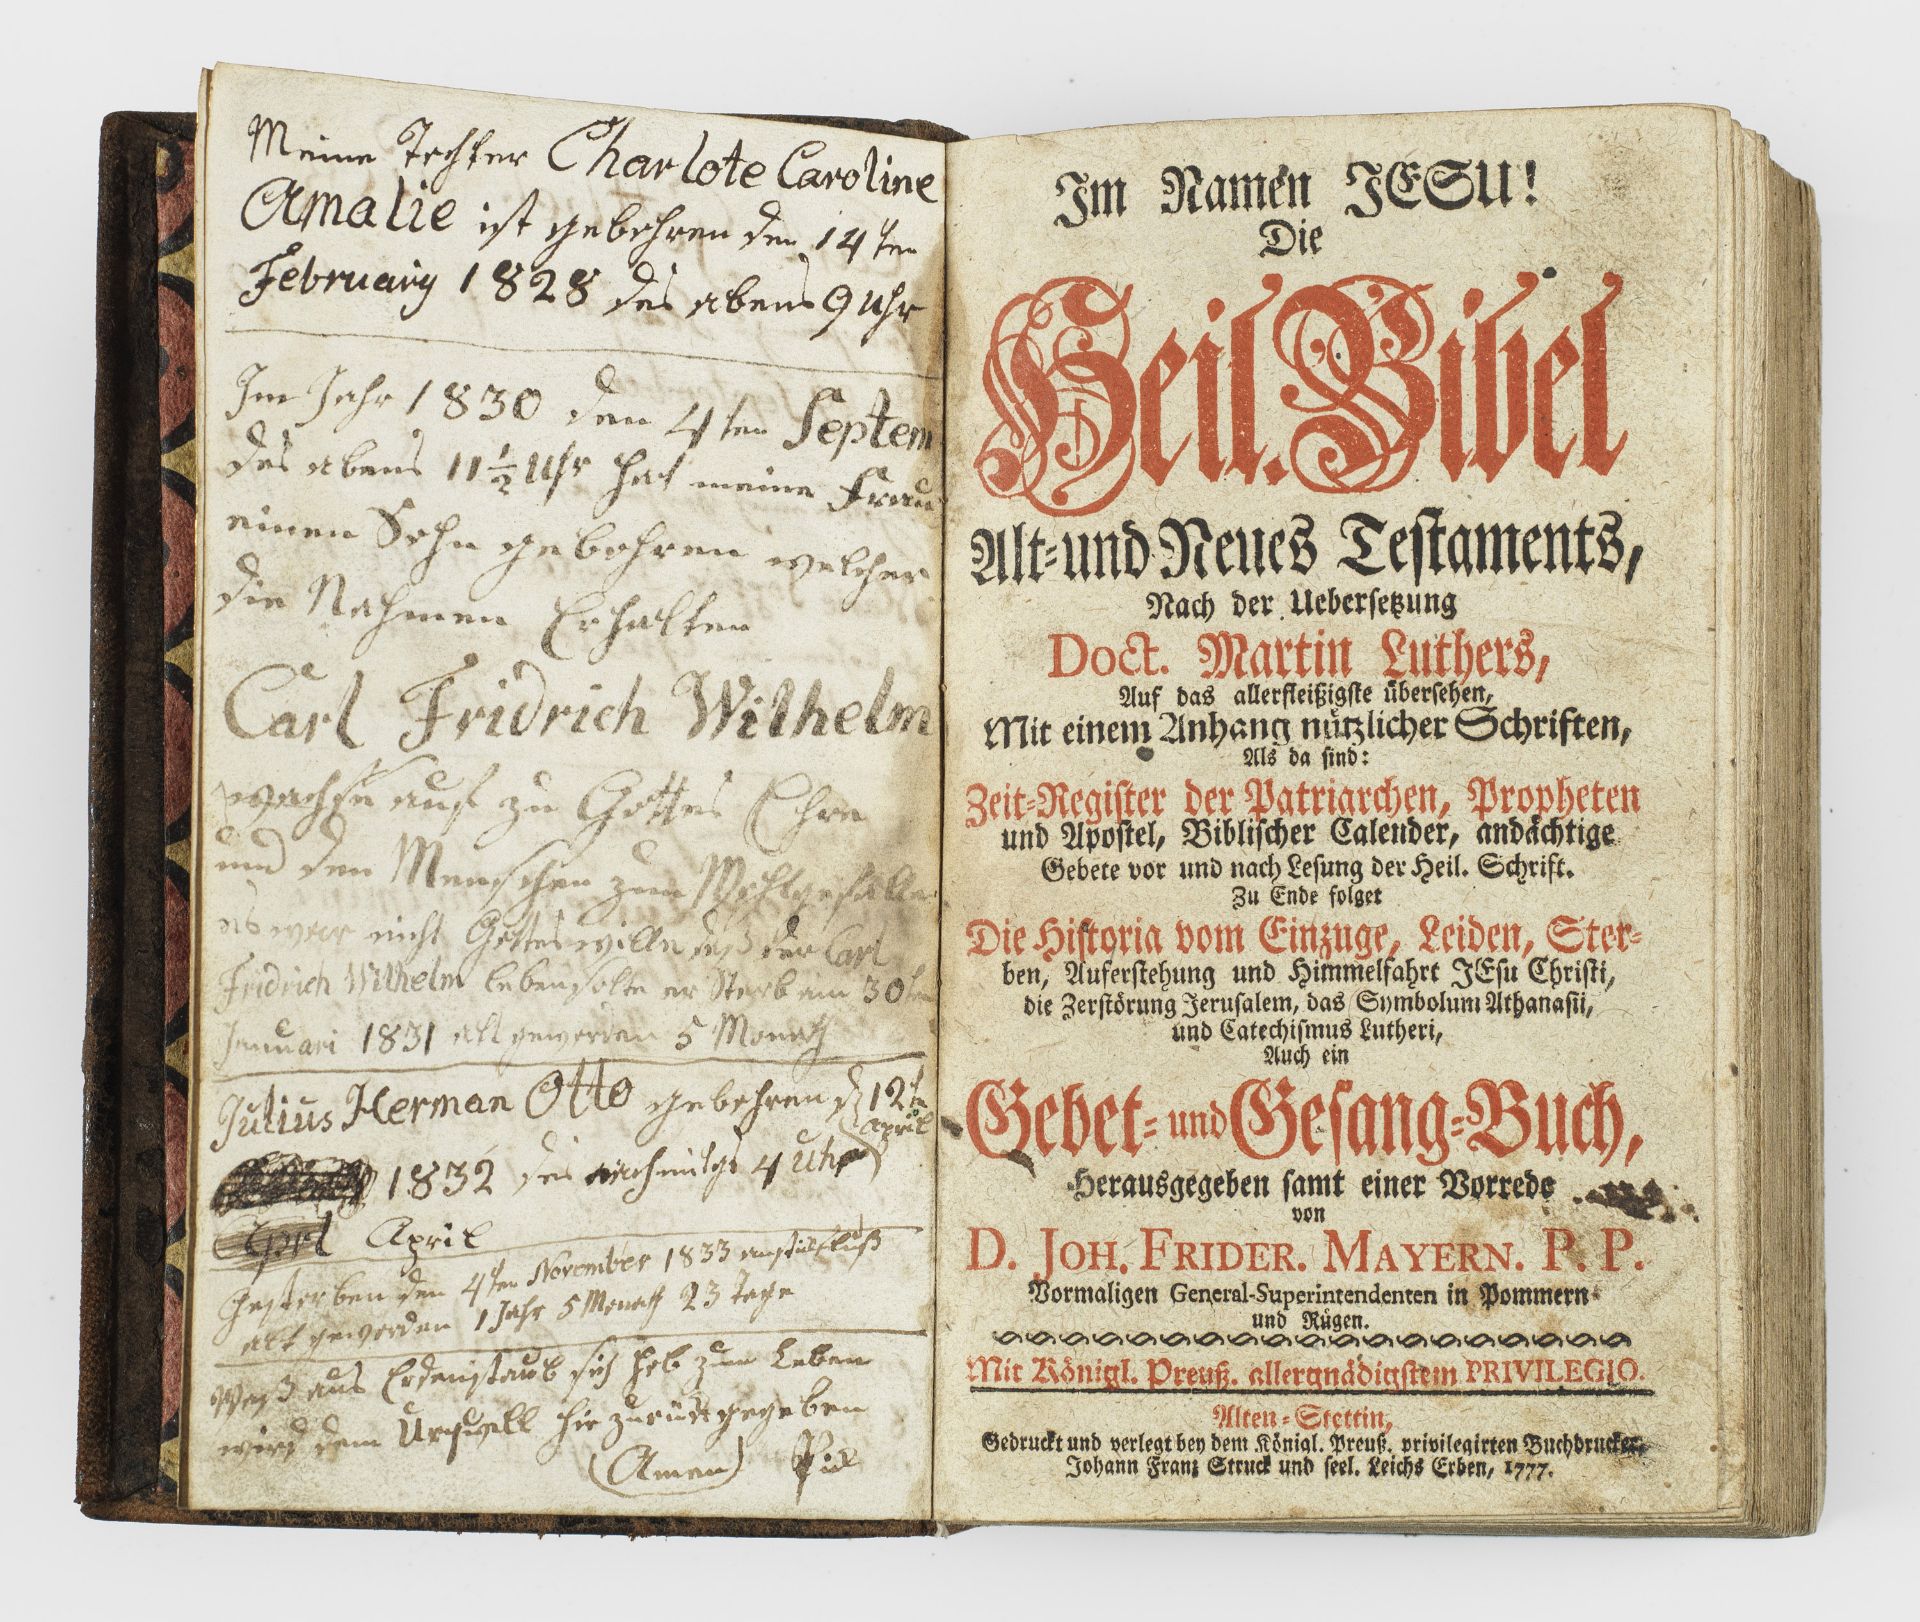 Meine Tochter Charlote Caroline
Amalie ist gebohren den 14ten
February 1828 des abens 9 Uhr
Im Jahr 1830 den 4ten Septem
des abens 11 1/2 Uhr hat meine Frau
einen Sohn gebohren welcher
die Nahmen Erhalten
Carl Fridrich Wilhelm
wachse auf zu Gottes Ehre
und den Menschen zum Wohlgefalle
es war nicht Gotteswille daß der Carl
Fridrich Wilhelm leben solte er Sterb am 30ten
Januari 1831 alt geworden 5 Monath
Julius Herman Otto gebohren d 12t
April
1832 des nachmitgs 4 Uhr
Aprl April
Gestorben den 4ten November 1833
alt geworden 1 Jahr 5 Monath 23 Tage
Was aus Erdenstaub sich hob zum Leben
wird dem Urquell hir zurückgegeben
(Amen)
Im Namen JESU!
Die
Heil. Bibel
Alt= und Neues Testaments,
Nach der Uebersetzung
Doct. Martin Luthers,
Auf das allerfleißigste übersehen,
Mit einem Anhang nützlicher Schriften,
Als da sind:
Zeit=Register der Patriarchen, Propheten
und Apostel, Biblischer Calender, andächtige
Gebete vor und nach Lesung der Heil. Schrift.
Zu Ende folget
Die Historia vom Einzuge, Leiden, Ster=
ben, Auferstehung und Himmelfahrt JEsu Christi,
die Zerstörung Jerusalem, das Symbolum Athanasii,
und Catechismus Lutheri,
Auch ein
Gebet= und Gesang=Buch,
Herausgegeben samt einer Vorrede
von
D. JOH. FRIDER. MAYERN. P. P.
Vormaligen General-Superintendenten in Pommern
und Rügen.
Mit Königl. Preuß. allergnädigstem PRIVILEGIO.
Alten=Stettin,
Gedruckt und verlegt bey dem Königl. Preuß. privilegirten Buchdrucker,
Johann Franz Struck und seel. Leichs Erben, 1777.